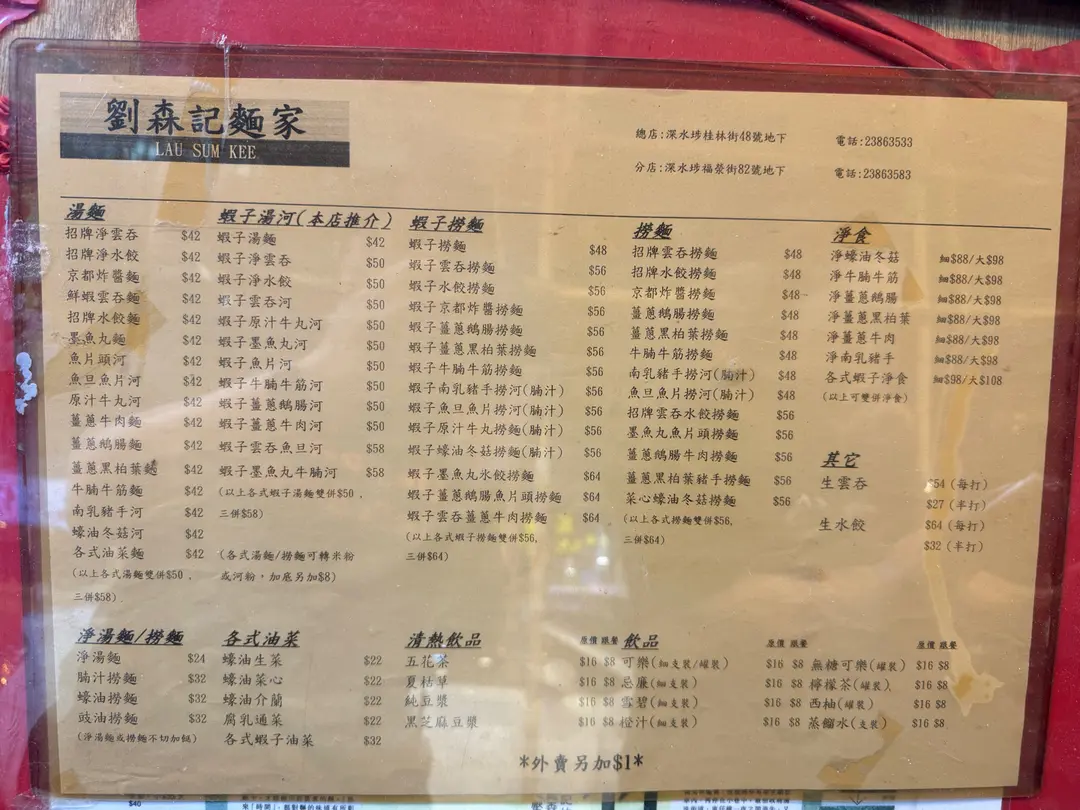 劉森記麵家
LAU SUM KEE
總店:深水埗桂林街48號地下 電話:23863533
分店:深水埗福榮街82號地下 電話:23863583
湯麵
招牌淨雲吞 $42
招牌淨水餃 $42
京都炸醬麵 $42
鮮蝦雲吞麵 $42
招牌水餃麵 $42
墨魚丸麵 $42
魚片頭河 $42
魚旦魚片河 $42
原汁牛丸河 $42
薑蔥牛肉麵 $42
薑蔥鵝腸麵 $42
薑蔥黑柏葉麵 $42
牛腩牛筋麵 $42
南乳豬手河 $42
蠔油冬菇河 $42
各式油菜麵 $42
(以上各式湯麵雙併$50,
三併$58)
蝦子湯河(本店推介)
蝦子湯麵 $42
蝦子淨雲吞 $50
蝦子淨水餃 $50
蝦子雲吞河 $50
蝦子原汁牛丸河 $50
蝦子墨魚丸河 $50
蝦子魚片河 $50
蝦子牛腩牛筋河 $50
蝦子薑蔥鵝腸河 $50
蝦子薑蔥牛肉河 $50
蝦子雲吞魚旦河 $58
蝦子墨魚丸牛腩河 $58
(以上各式蝦子湯麵雙併$50,
三併$58)
(各式湯麵/撈麵可轉米粉
或河粉,加底另加$8)
蝦子撈麵
蝦子撈麵 $48
蝦子雲吞撈麵 $56
蝦子水餃撈麵 $56
蝦子京都炸醬撈麵 $56
蝦子薑蔥鵝腸撈麵 $56
蝦子薑蔥黑柏葉撈麵 $56
蝦子牛腩牛筋撈麵 $56
蝦子南乳豬手撈河(腩汁) $56
蝦子魚旦魚片撈河(腩汁) $56
蝦子原汁牛丸撈麵(腩汁) $56
蝦子蠔油冬菇撈麵(腩汁) $56
蝦子墨魚丸水餃撈麵 $64
蝦子薑蔥鵝腸魚片頭撈麵 $64
蝦子雲吞薑蔥牛肉撈麵 $64
(以上各式蝦子撈麵雙併$56,
三併$64)
撈麵
招牌雲吞撈麵 $48
招牌水餃撈麵 $48
京都炸醬撈麵 $48
薑蔥鵝腸撈麵 $48
薑蔥黑柏葉撈麵 $48
牛腩牛筋撈麵 $48
南乳豬手撈河(腩汁) $48
魚旦魚片撈河(腩汁) $48
招牌雲吞水餃撈麵 $56
墨魚丸魚片頭撈麵 $56
薑蔥鵝腸牛肉撈麵 $56
薑蔥黑柏葉豬手撈麵 $56
菜心蠔油冬菇撈麵 $56
(以上各式撈麵雙併$56,
三併$64)
淨食
淨蠔油冬菇 細$88/大$98
淨牛腩牛筋 細$88/大$98
淨薑蔥鵝腸 細$88/大$98
淨薑蔥黑柏葉 細$88/大$98
淨薑蔥牛肉 細$88/大$98
淨南乳豬手 細$88/大$98
各式蝦子淨食 細$98/大$108
(以上可雙併淨食)
其它
生雲吞 $54 (每打)
$27 (半打)
生水餃 $64 (每打)
$32 (半打)
淨湯麵/撈麵
淨湯麵 $24
腩汁撈麵 $32
蠔油撈麵 $32
豉油撈麵 $32
(淨湯麵或撈麵不切加餸)
各式油菜
蠔油生菜 $22
蠔油菜心 $22
蠔油介蘭 $22
腐乳通菜 $22
各式蝦子油菜 $32
清熱飲品 原價 跟餐
五花茶 $16 $8
夏枯草 $16 $8
純豆漿 $16 $8
黑芝麻豆漿 $16 $8
飲品 原價 跟餐 原價 跟餐
可樂(細支裝/罐裝) $16 $8 無糖可樂(罐裝) $16 $8
忌廉(細支裝) $16 $8 檸檬茶(罐裝) $16 $8
雪碧(細支裝) $16 $8 西柚(罐裝) $16 $8
橙汁(細支裝) $16 $8 蒸餾水(支裝) $16 $8
*外賣另加$1*
$40